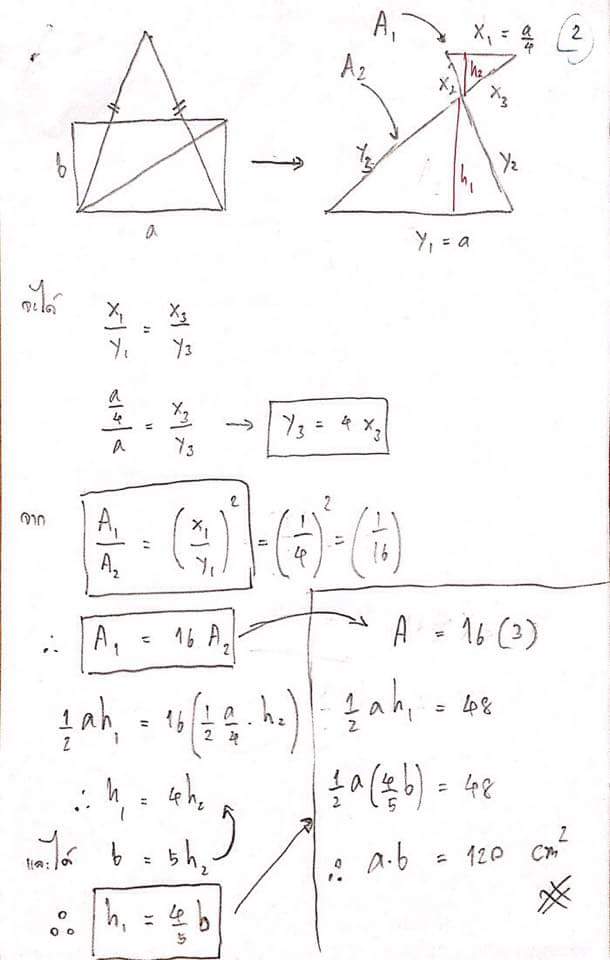 2
b
a
A₁
x₁ = a/4
A₂
h₂
x₂
x₃
y₃
y₂
h₁
y₁ = a
จะได้
x₁/y₁ = x₃/y₃
(a/4)/a = x₃/y₃ → y₃ = 4 x₃
จาก
A₁/A₂ = (x₁/y₁)² = (1/4)² = (1/16)
∴ A₁ = 16 A₂
½ ah₁ = 16(½ a/4 · h₂)
∴ h₁ = 4h₂
และได้ b = 5h₂
∴ h₁ = 4/5 b
A = 16 (3)
½ a h₁ = 48
½ a(4/5 b) = 48
∴ a·b = 120 cm²